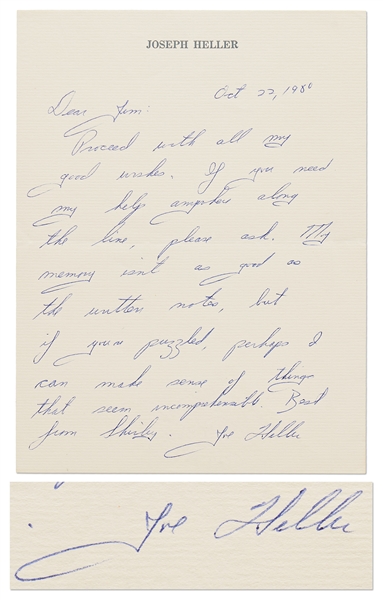 JOSEPH HELLER
Oct 22, 1986
Dear Jim:
Proceed with all my
good wishes. If you need
my help anywhere along
the line, please ask. My
memory isn't as good as
the written notes, but
if you're puzzled, perhaps I
can made sense of things
that seem incomprehensible. Best
from Shirley. Joe Heller
Joe Heller